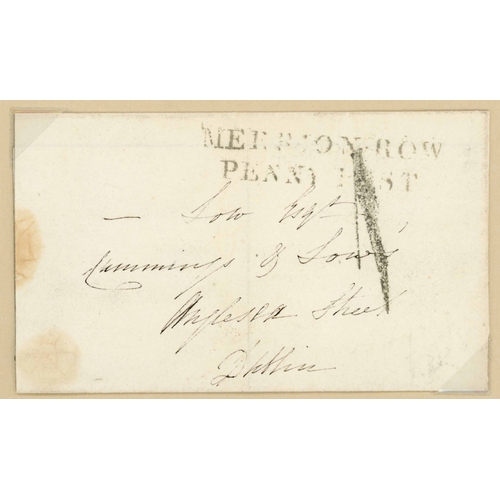 MERRION ROW
PENNY POST
— Low Esqr
Cummings & Low's
Anglesea Street
Dublin